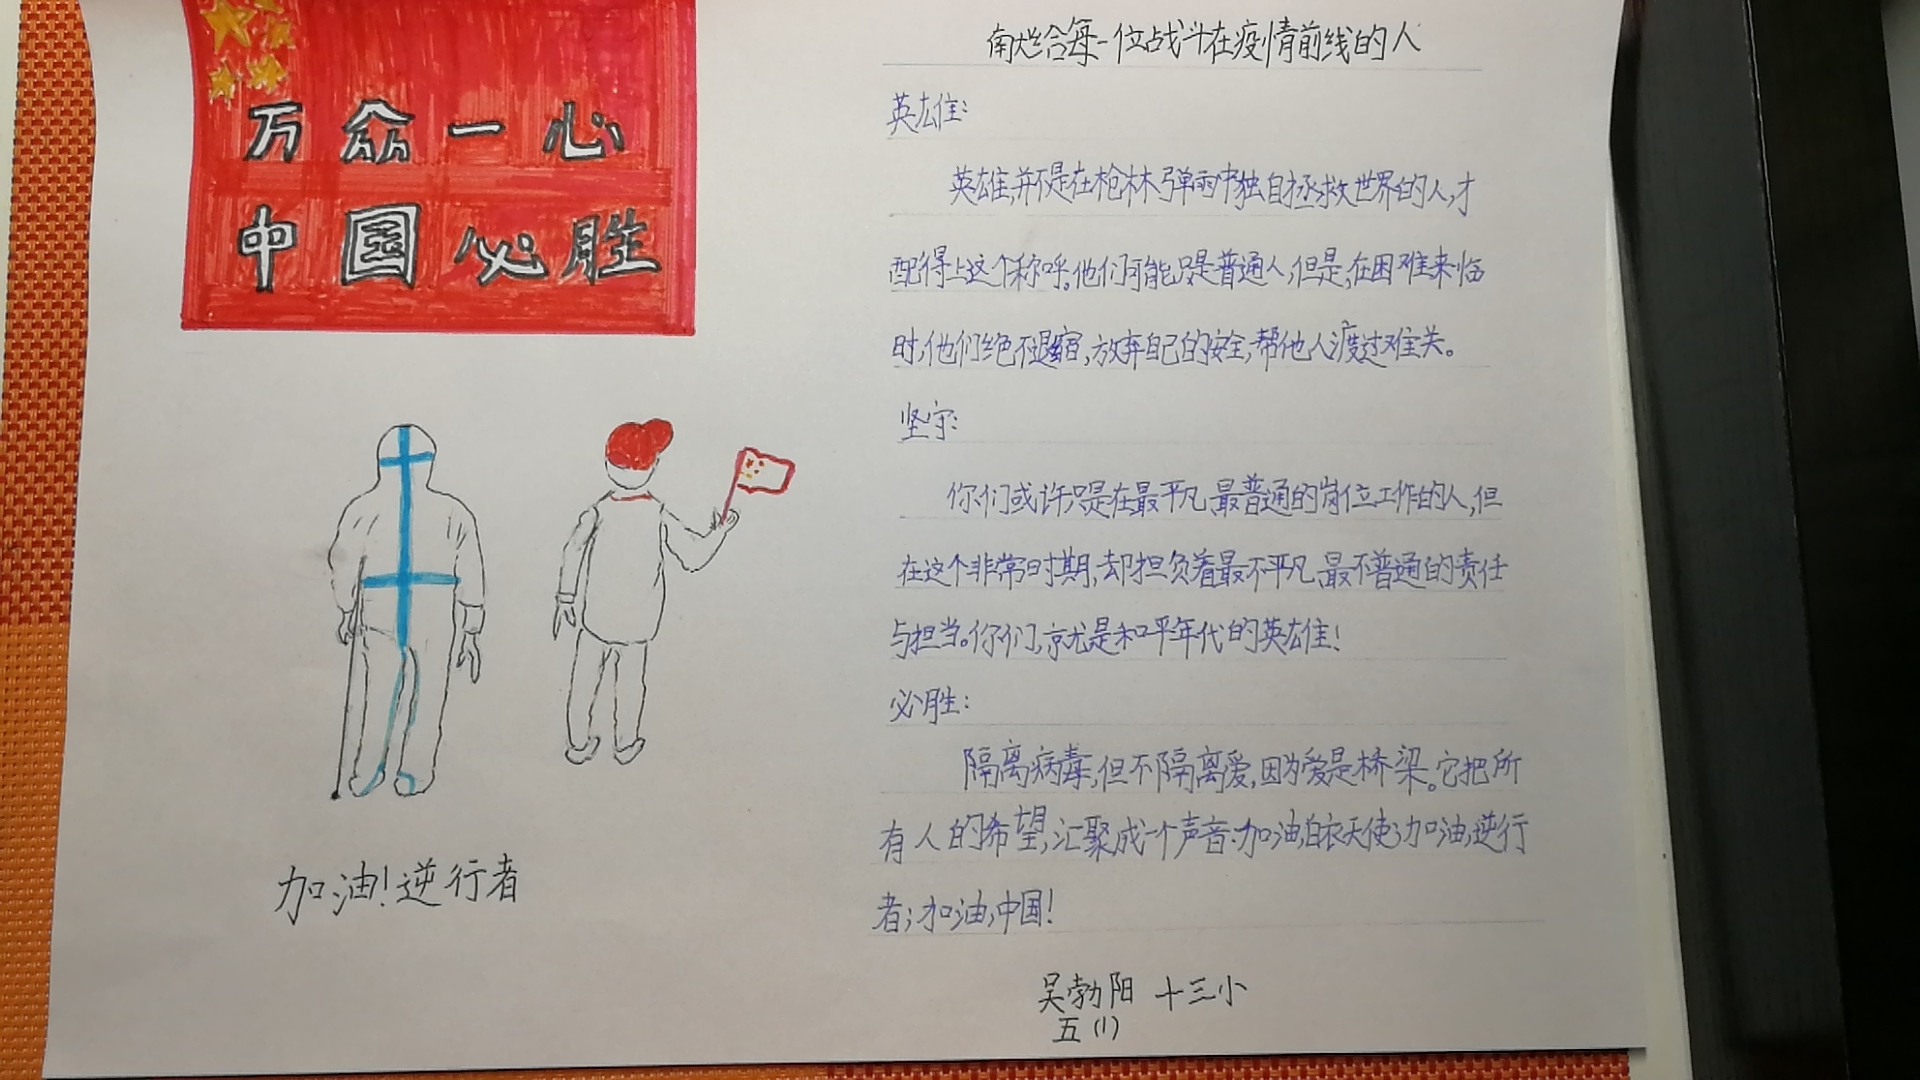 万众一心
中国必胜
加油！逆行者
献给每一位战斗在疫情前线的人
英雄：
英雄，并不是在枪林弹雨中独自拯救世界的人，才
配得上这个称呼。他们可能只是普通人，但是，在困难来临
时，他们绝不退缩，放弃自己的安全，帮他人渡过难关。
坚守：
你们或许只是在最平凡、最普通的岗位工作的人，但
在这个非常时期，却担负着最不平凡、最不普通的责任
与担当。你们，就是和平年代的英雄！
必胜：
隔离病毒，但不隔离爱，因为爱是桥梁。它把所
有人的希望，汇聚成一个声音：加油，白衣天使；加油，逆行
者；加油，中国！
吴勃阳 十三小
五（1）